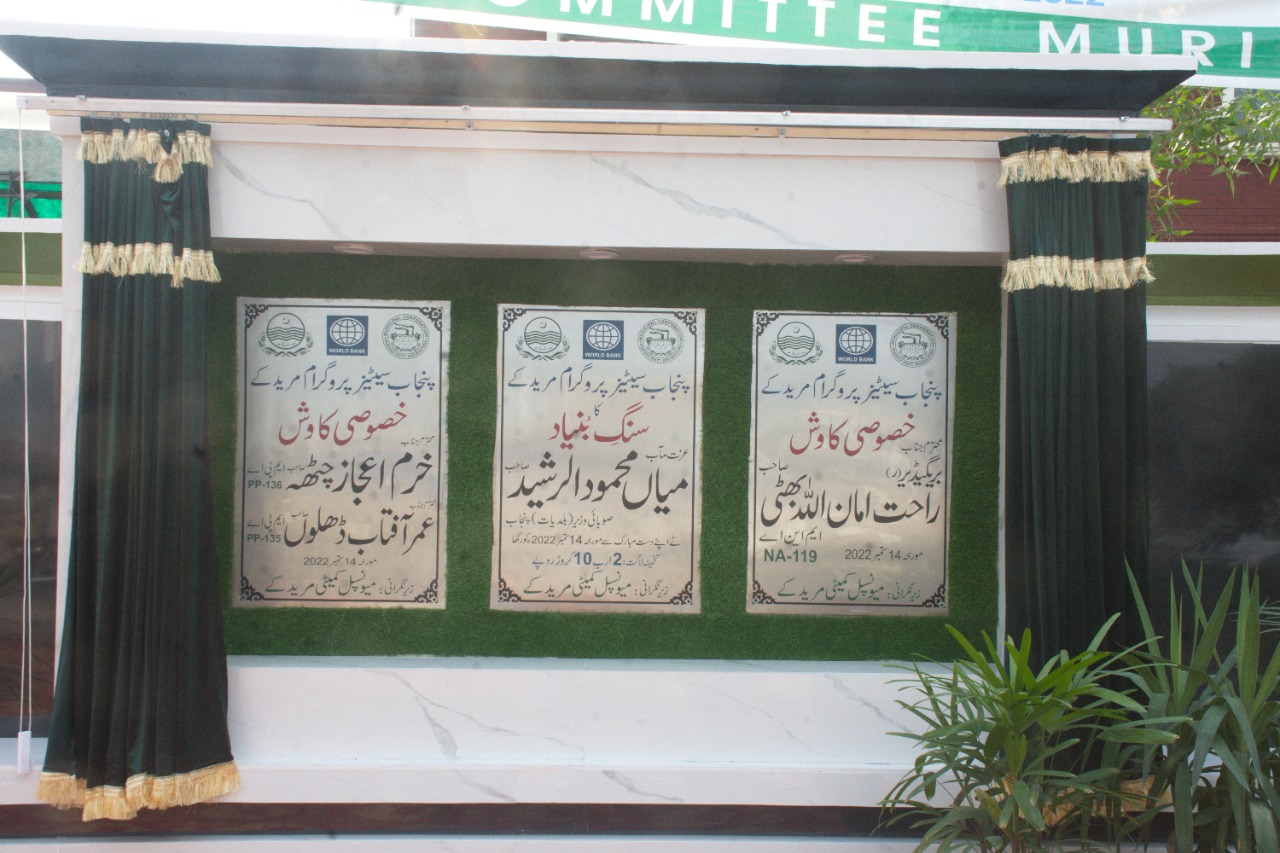 2022
OMMITTEE MURI
WORLD BANK
پنجاب سیٹیز پروگرام مریدکے
خصوصی کاوش
محترم جناب
خرم اعجاز چٹھہ صاحب ایم پی اے
PP-136
محترم جناب
عمر آفتاب ڈھلوں صاحب ایم پی اے
PP-135
مورخہ 14 ستمبر 2022
زیرِنگرانی : میونسپل کمیٹی مریدکے
WORLD BANK
پنجاب سیٹیز پروگرام مریدکے
کا
سنگِ بُنیاد
عزت مآب
میاں محمود الرشید صاحب
صوبائی وزیر (بلدیات) پنجاب
نے اپنے دست مبارک سے مورخہ 14 ستمبر 2022 کو رکھا
تخمینہ لاگت : 2 ارب 10 کروڑ روپے
زیرِنگرانی : میونسپل کمیٹی مریدکے
WORLD BANK
پنجاب سیٹیز پروگرام مریدکے
خصوصی کاوش
محترم جناب
بریگیڈیر (ر)
راحت امان اللہ بھٹی صاحب
ایم این اے
NA-119
مورخہ 14 ستمبر 2022
زیرِنگرانی : میونسپل کمیٹی مریدکے